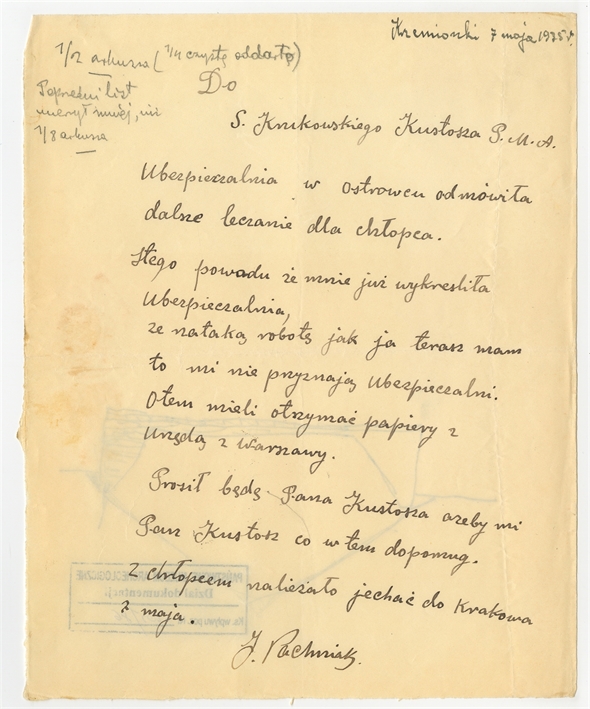 Krzemionki 7 maja 1935 r.
1/2 arkusza (1/4 czystą oddarto)
Poprzedni list
mierzył mniej, niż
1/8 arkusza
Do
S. Krukowskiego Kustosza P. M. A.
Ubezpieczalnia w Ostrowcu odmówiła
dalsze leczanie dla chłopca.
Stego powodu że mnie już wykresliła
Ubezpieczalnia,
ze nataką robotę jak ja terasz mam
to mi nie przyznają Ubezpieczalni.
Otem mieli otrzymać papiery z
Urzędą z Warszawy.
Prosił będę Pana Kustosza azeby mi
Pan Kustosz co w tem dopomug.
z chłopcem należało jechać do Krakowa
2 maja.